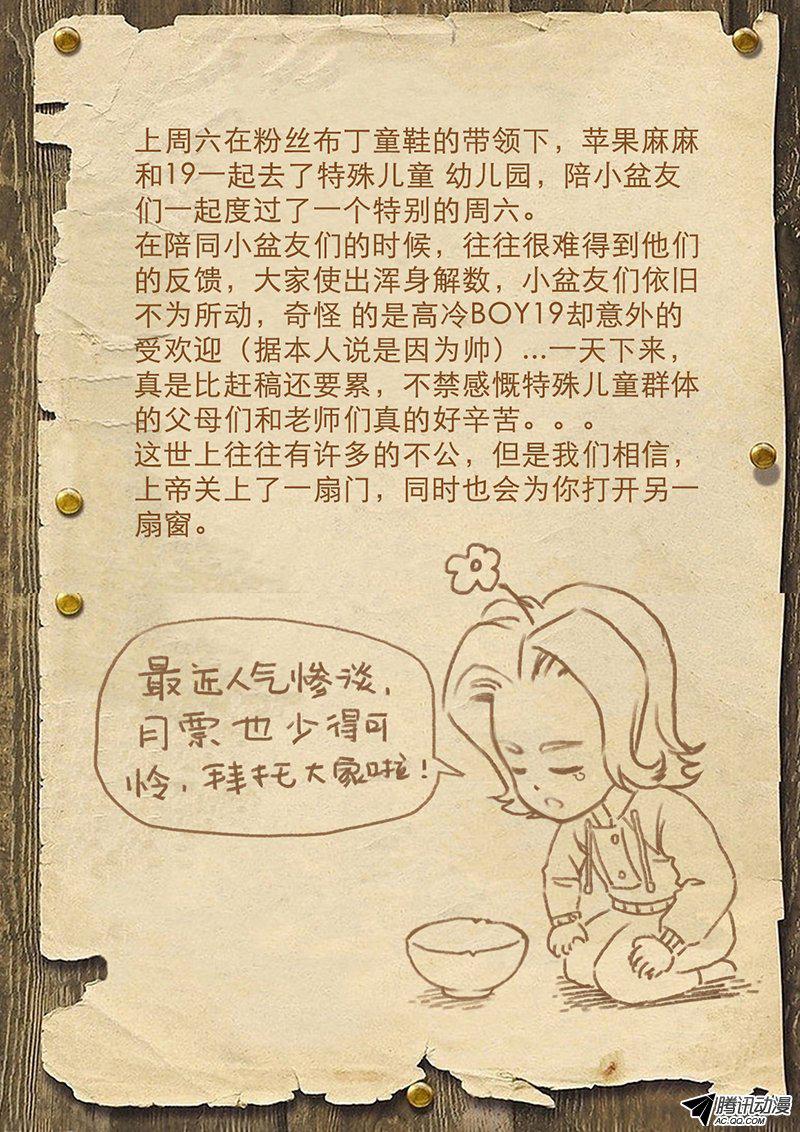 上周六在粉丝布丁童鞋的带领下，苹果麻麻
和19一起去了特殊儿童 幼儿园，陪小盆友
们一起度过了一个特别的周六。
在陪同小盆友们的时候，往往很难得到他们
的反馈，大家使出浑身解数，小盆友们依旧
不为所动，奇怪 的是高冷BOY19却意外的
受欢迎（据本人说是因为帅）...一天下来，
真是比赶稿还要累，不禁感慨特殊儿童群体
的父母们和老师们真的好辛苦。。。
这世上往往有许多的不公，但是我们相信，
上帝关上了一扇门，同时也会为你打开另一
扇窗。
最近人气惨淡，
月票也少得可
怜，拜托大家啦！
腾讯动漫
AC.QQ.COM